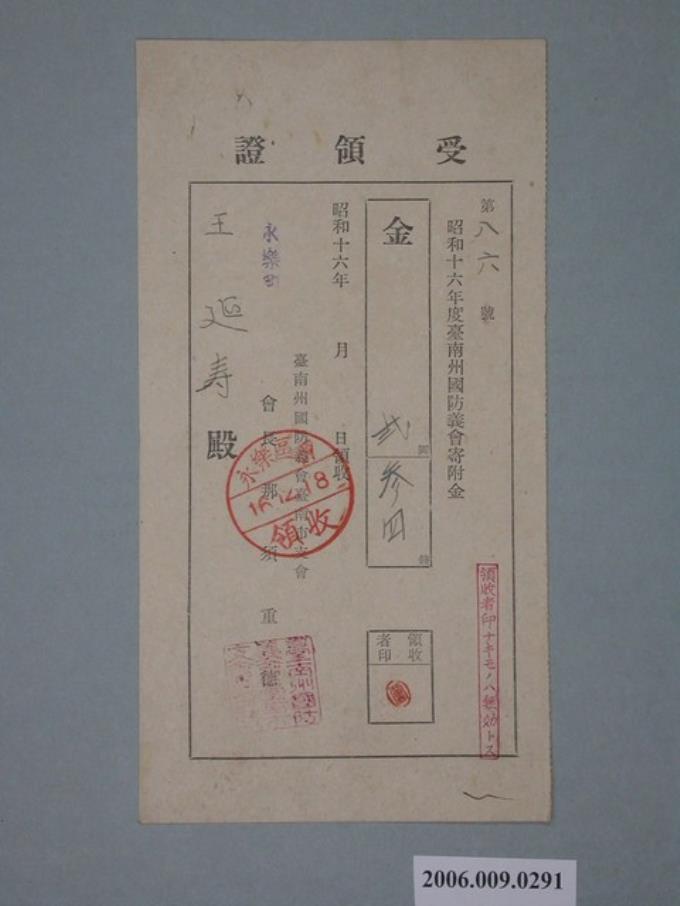 受領證
第八六號
昭和十六年度臺南州國防義會寄附金
領收者印ナキモノハ無効トス
金 貳圓 參四錢
領收者印
昭和十六年 月 日領收
臺南州國防義會臺南市支會
會長 那須重德
永樂町
王延寿殿
永樂區
16.12.18
領收
臺南州國防
2006.009.0291